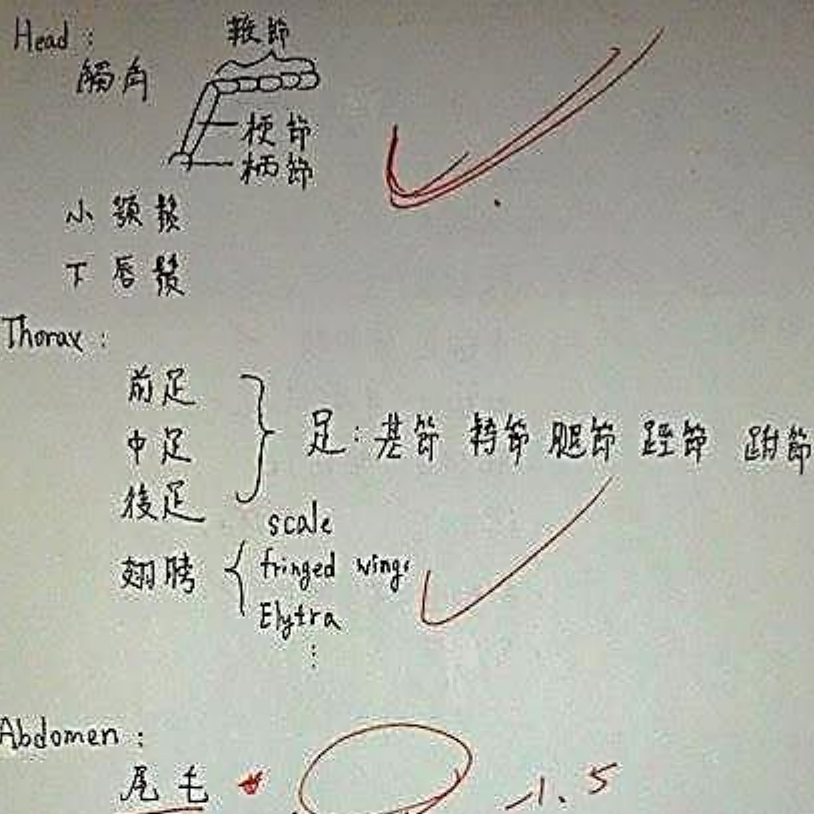 Head :
鞭節
觸角
梗節
柄節
小顎鬚
下唇鬚
Thorax :
前足
中足
後足
足: 基節 轉節 腿節 脛節 跗節
翅膀
scale
fringed wings
Elytra
⋮
Abdomen :
尾毛
-1.5